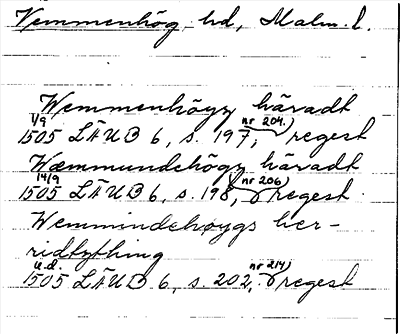 Vemmenhög hd, Malm. l.
Wemmenhögz häradt
1/9 nr 204.)
1505 LÄUB 6, s. 197, regest
Wæmmundehögz häradt
14/9 nr 206)
1505 LÄUB 6, s. 198, regest.
Wemmindehøygs her-
ridtzthing
u.d. nr 214)
1505 LÄUB 6, s. 202, regest